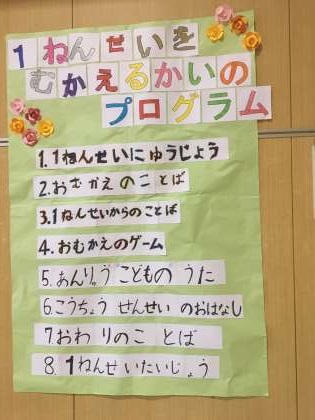 1ねんせいを
むかえるかいの
プログラム
1.1ねんせいにゅうじょう
2.おむかえのことば
3.1ねんせいからのことば
4.おむかえのゲーム
5.あんりゅうこどものうた
6.こうちょうせんせいのおはなし
7.おわりのことば
8.1ねんせいたいじょう